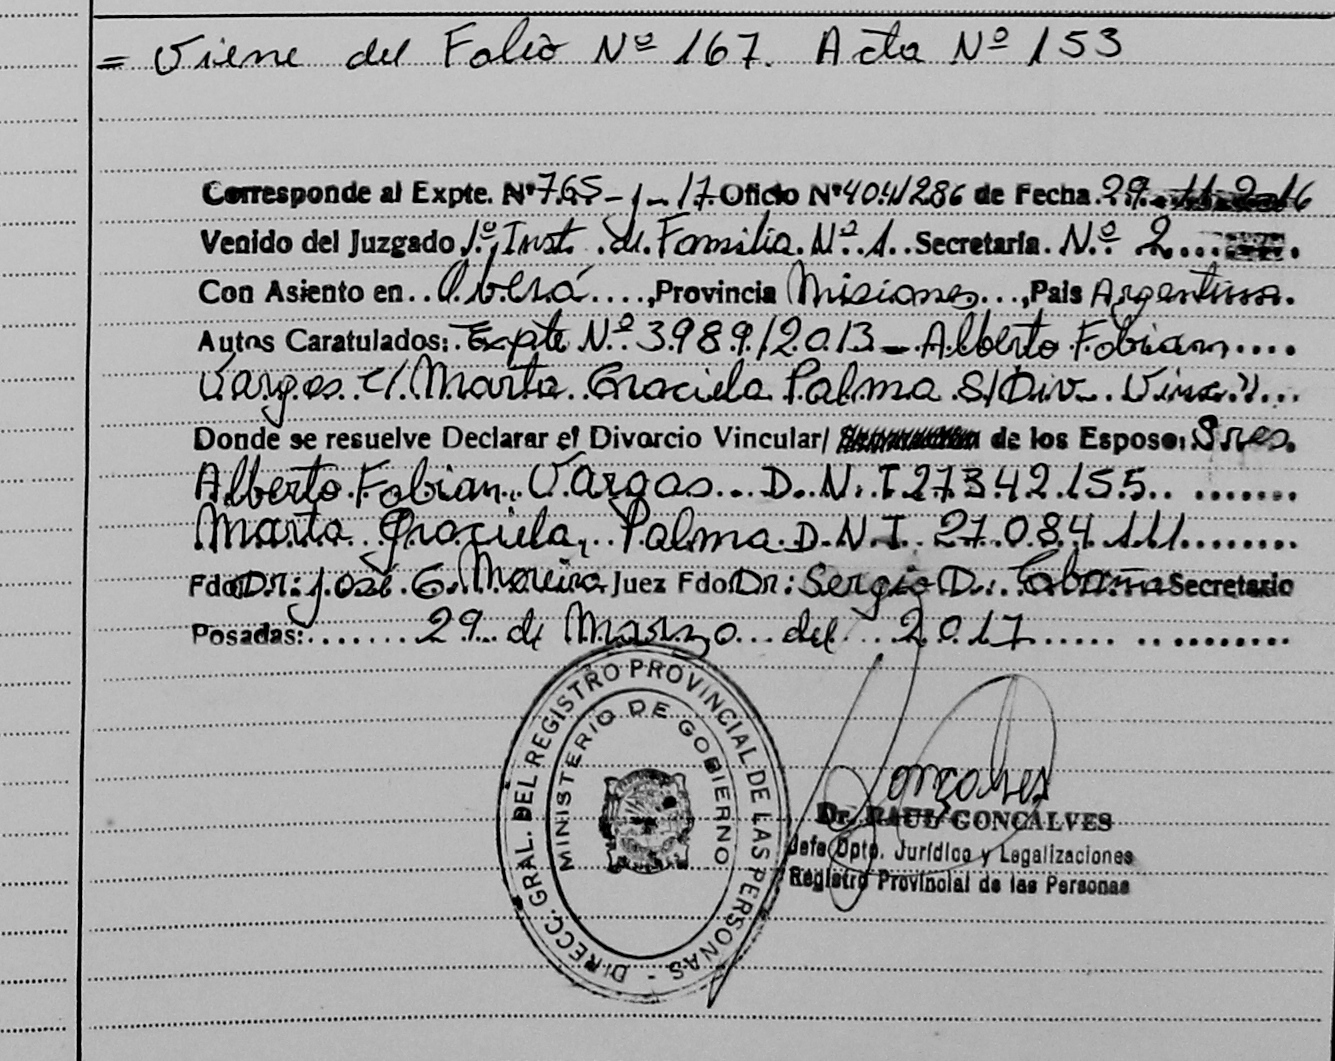 = Viene del Folio Nº 167. Acta Nº 153
Corresponde al Expte. Nº 765-J-17 Oficio Nº 404/286 de Fecha 29-11-2016
Venido del Juzgado 1º, Inst. de Familia Nº 1 Secretaría Nº 2
Con Asiento en Oberá, Provincia Misiones, País Argentina.
Autos Caratulados: Expte Nº 3989/2013 - Alberto Fabian
Vargas c/ Marta Graciela Palma S/ Div. Vinc."
Donde se resuelve Declarar el Divorcio Vincular/ de los Esposos: Sres.
Alberto Fabian, Vargas D.N.I 27.342.155
Marta Graciela, Palma D.N.I. 27.084.111
Fdo Dr: José G. Moreira Juez Fdo Dr: Sergio D. Secretario
Posadas: 29 de Marzo del 2017
DIRECC. GRAL. DEL REGISTRO PROVINCIAL DE LAS PERSONAS -
MINISTERIO DE GOBIERNO
Gonçalves
Dr. RAUL GONCALVES
Jefe Dpto. Jurídico y Legalizaciones
Registro Provincial de las Personas